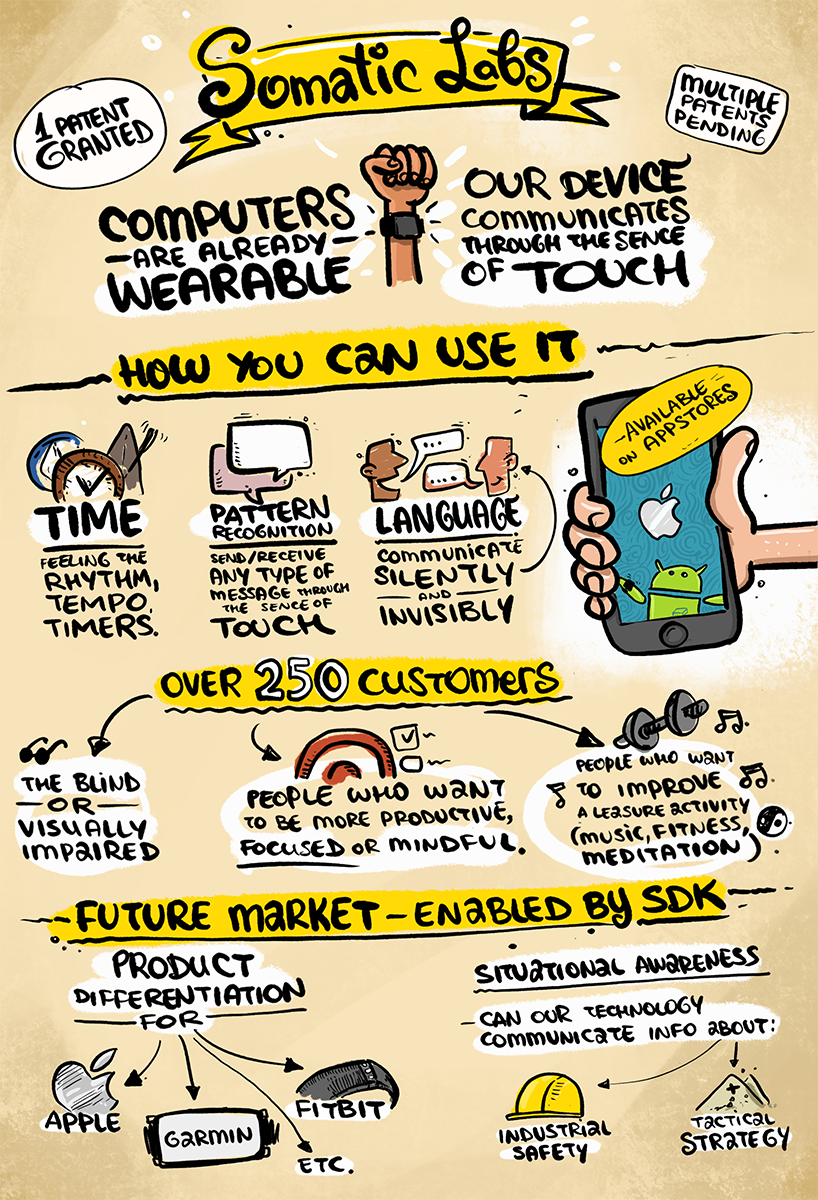 Somatic Labs
1 PATENT
GRANTED
MULTIPLE
PATENTS
PENDING
COMPUTERS
ARE ALREADY
WEARABLE
OUR DEVICE
COMMUNICATES
THROUGH THE SENCE
OF TOUCH
HOW YOU CAN USE IT
TIME
FEELING THE
RHYTHM,
TEMPO,
TIMERS.
PATTERN
RECOGNITION
SEND/RECEIVE
ANY TYPE OF
MESSAGE THROUGH
THE SENCE OF
TOUCH
LANGUAGE
COMMUNICATE
SILENTLY
AND
INVISIBLY
AVAILABLE
ON APPSTORES
OVER 250 CUSTOMERS
THE BLIND
OR
VISUALLY
IMPAIRED
PEOPLE WHO WANT
TO BE MORE PRODUCTIVE,
FOCUSED OR MINDFUL.
PEOPLE WHO WANT
TO IMPROVE
A LEASURE ACTIVITY
(MUSIC, FITNESS,
MEDITATION)
FUTURE MARKET - ENABLED BY SDK
PRODUCT
DIFFERENTIATION
FOR
APPLE
GARMIN
FITBIT
ETC.
SITUATIONAL AWARENESS
CAN OUR TECHNOLOGY
COMMUNICATE INFO ABOUT:
INDUSTRIAL
SAFETY
TACTICAL
STRATEGY